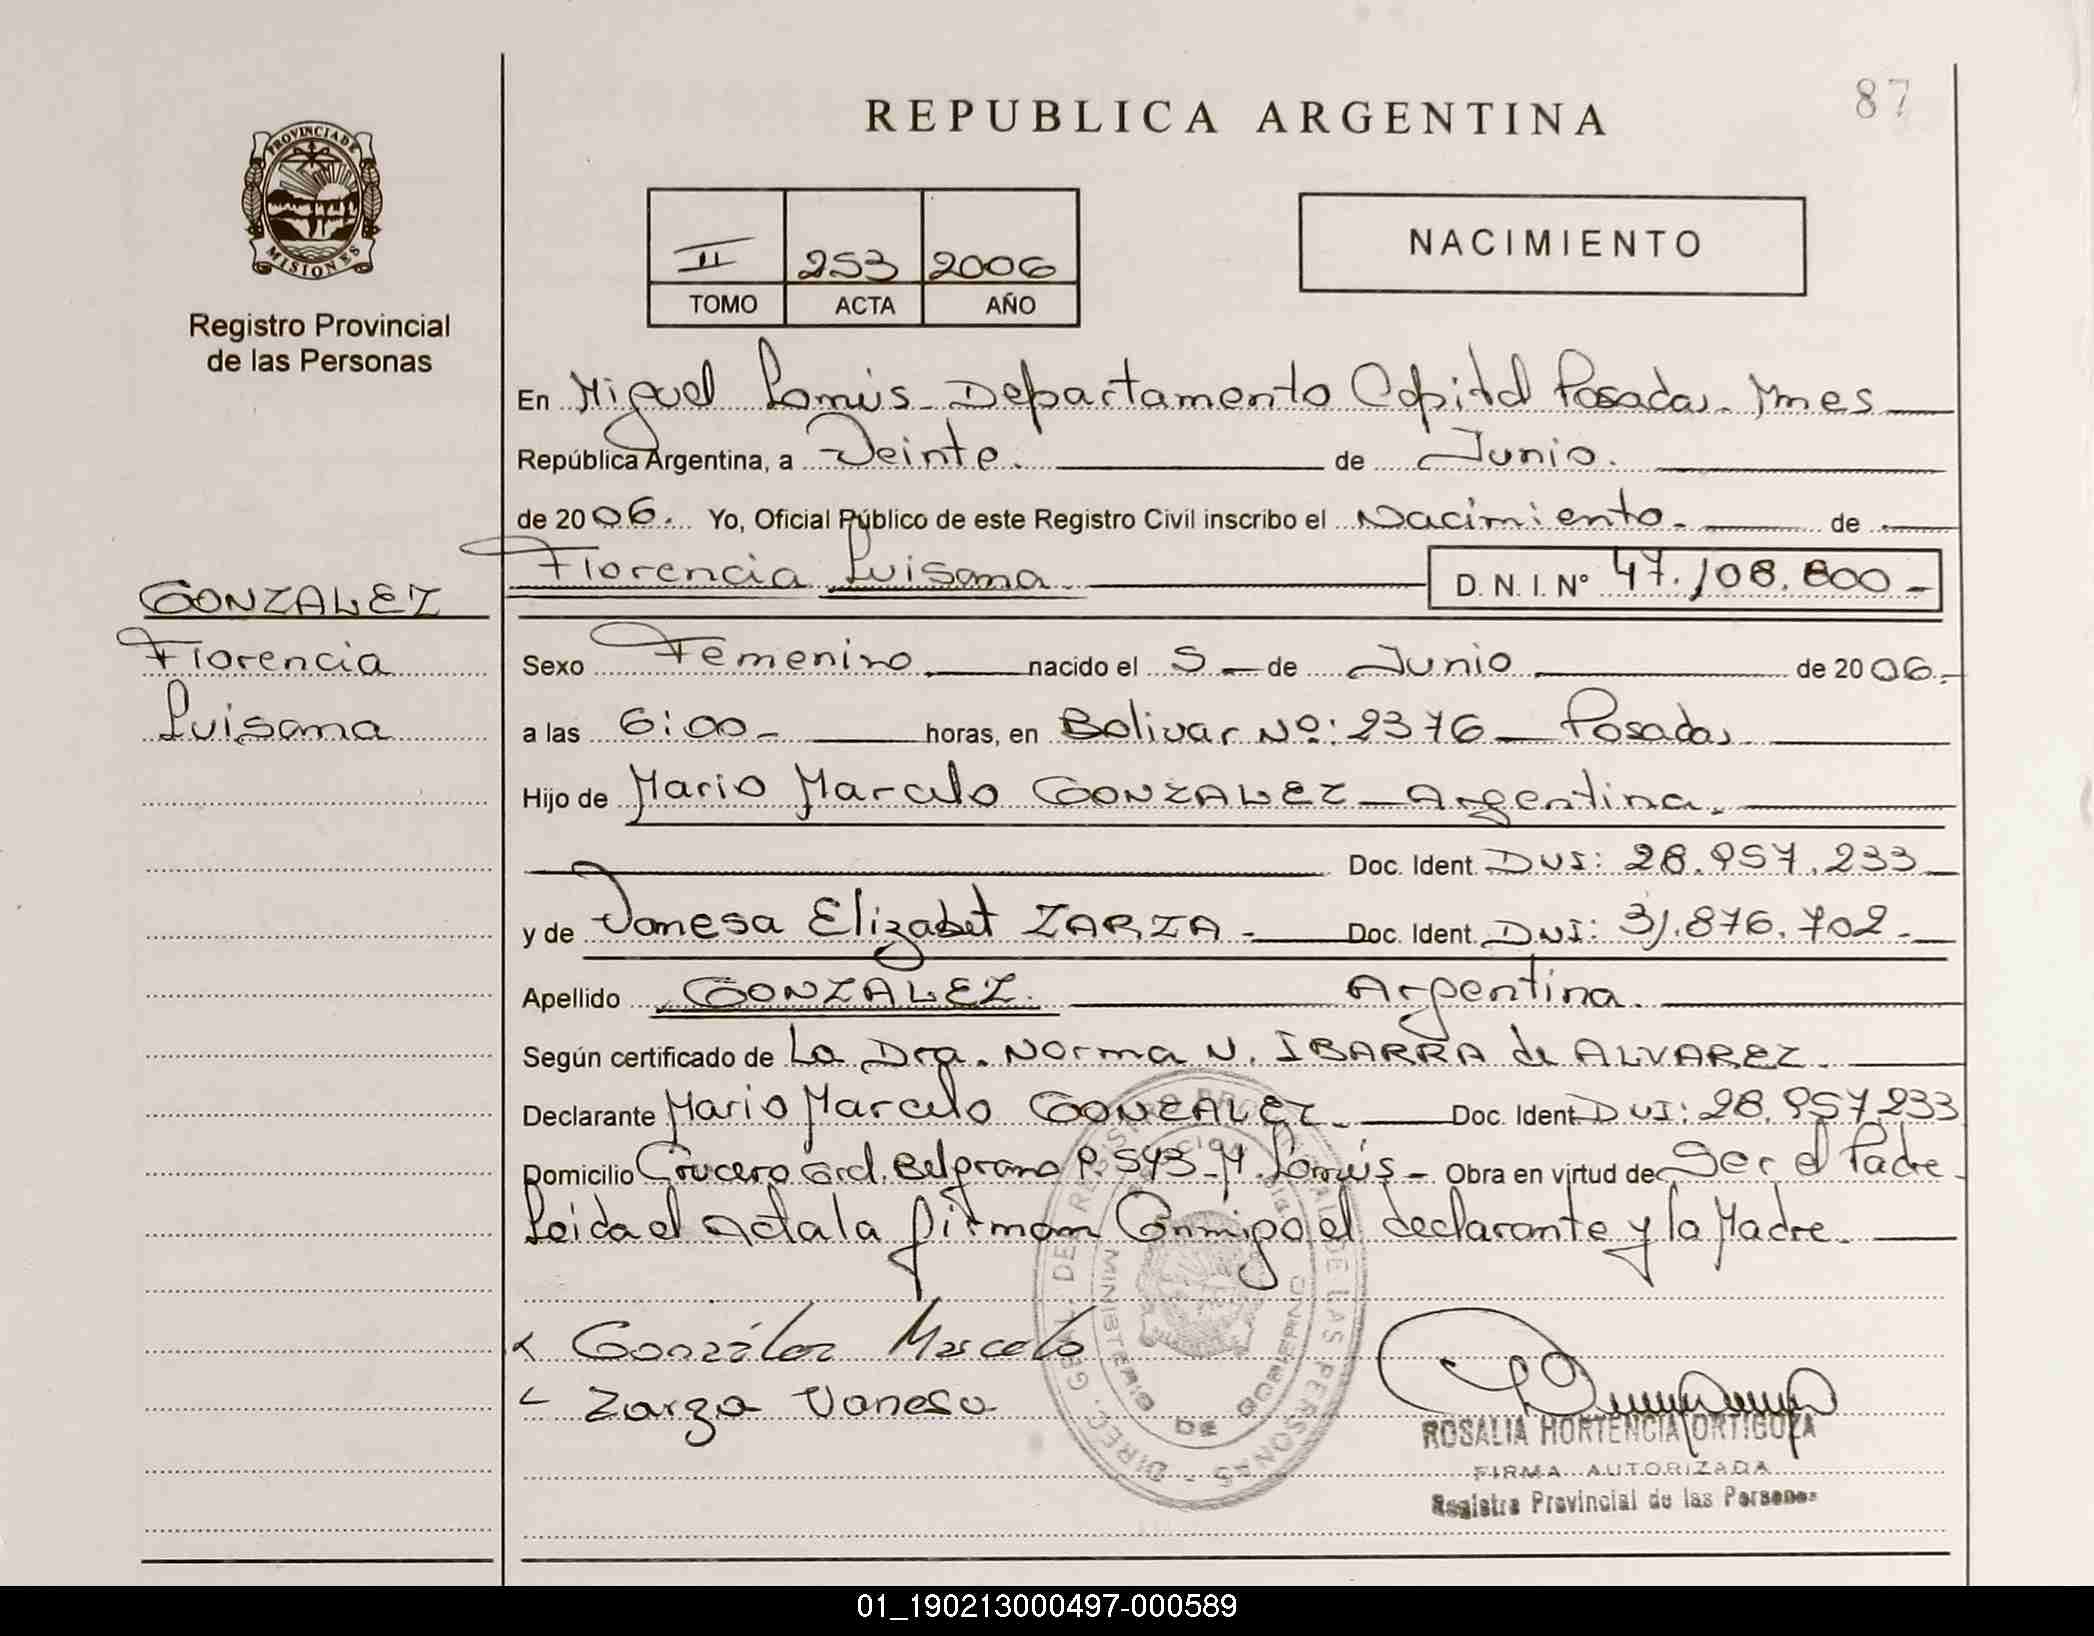 87
REPUBLICA ARGENTINA
PROVINCIA DE
MISIONES
Registro Provincial
de las Personas
II 253 2006
TOMO ACTA AÑO
NACIMIENTO
En Miguel Lanús - Departamento Capital Posadas - Mnes
República Argentina, a Veinte. de Junio.
de 2006. Yo, Oficial Público de este Registro Civil inscribo el Nacimiento. de
Florencia Luisana D. N. I. Nº 47.108.800 -
GONZALEZ
Florencia
Luisana
Sexo Femenino nacido el 5 - de Junio de 2006.-
a las 6:00 - horas, en Bolivar Nº: 2376 - Posadas
Hijo de Mario Marcelo GONZALEZ - Argentina.
Doc. Ident. DNI: 28.957.233
y de Vanesa Elizabet ZARZA - Doc. Ident. DNI: 31.876.702 -
Apellido GONZALEZ. Argentina.
Según certificado de La Dra. Norma N. IBARRA de ALVAREZ.
Declarante Mario Marcelo GONZALEZ. Doc. Ident. DNI: 28.957.233
Domicilio Crucero Gral. Belgrano P. 543 - M. Lanús - Obra en virtud de Ser el Padre -
Leida el Acta la firman Conmigo el declarante y la Madre.
González Marcelo
Zarza Vanesa
DIREC. GRAL. DE REGISTRO PROVINCIAL DE LAS PERSONAS
MINISTERIO DE GOBIERNO
ROSALIA HORTENCIA ORTIGOZA
FIRMA AUTORIZADA
Registro Provincial de las Personas
01_190213000497-000589